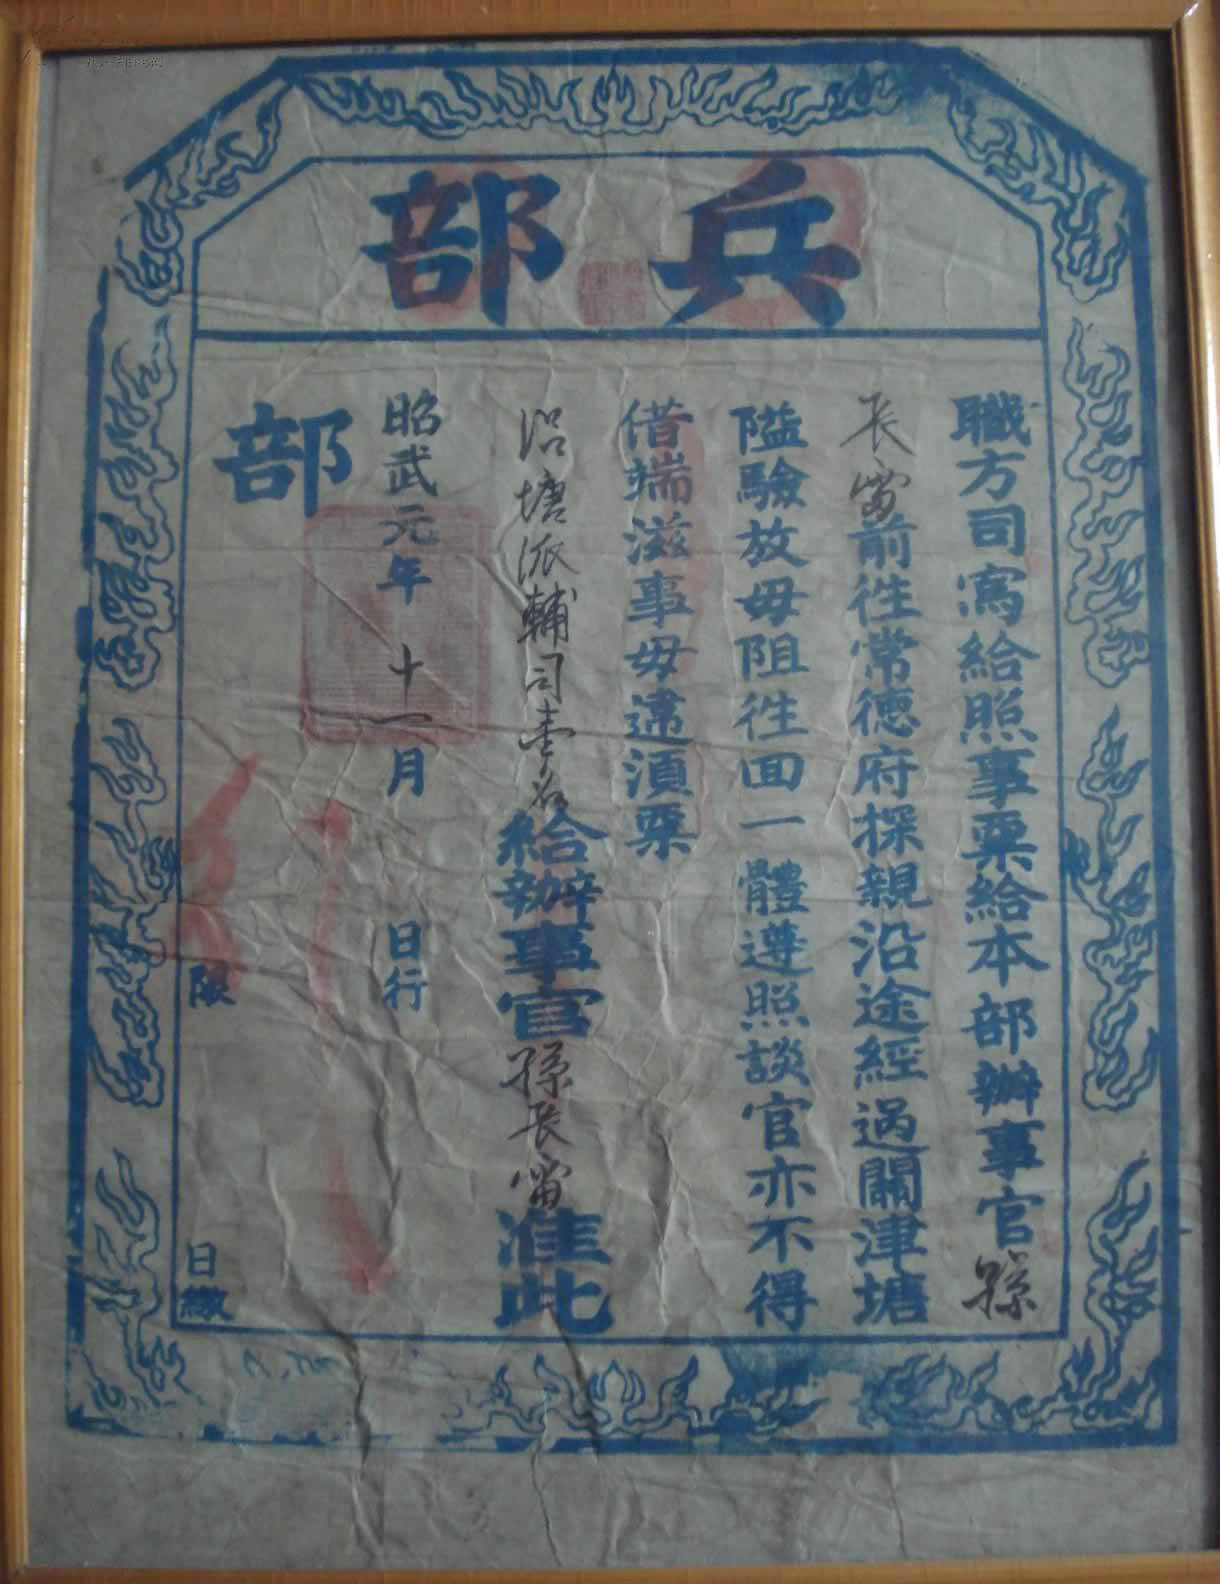 兵部
職方司為給照事票給本部辦事官孫
長
前往常德府探親沿途經過關津塘
隘驗放毋阻往回一體遵照該官亦不得
借端滋事毋違須票
沿塘派輔司壹名給辦事官孫長
准此
昭武元年十一月 日行
部
限 日繳